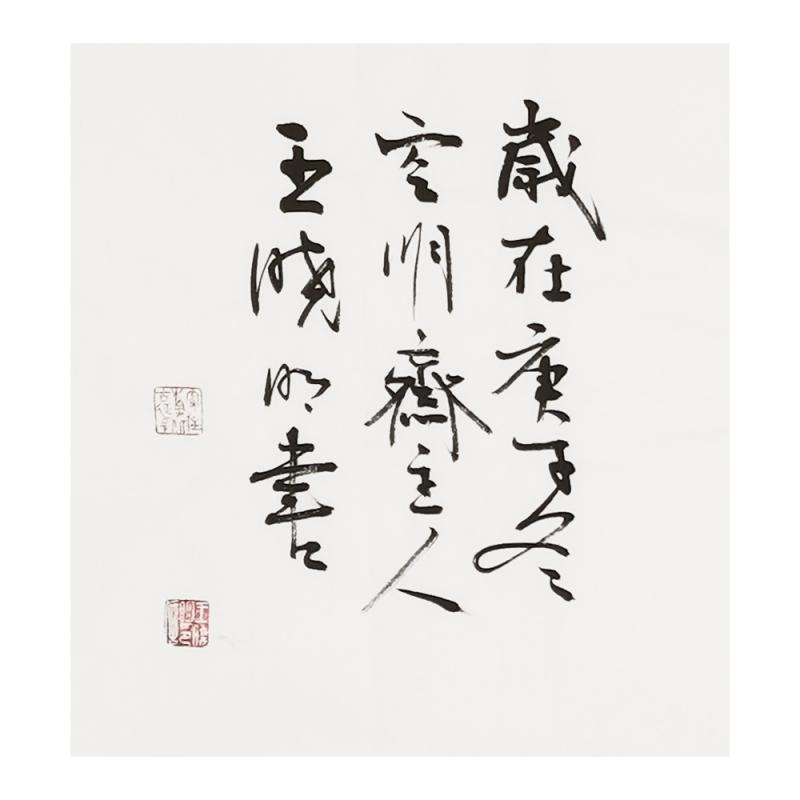 歲在庚子冬
空明齋主人
王晓明書